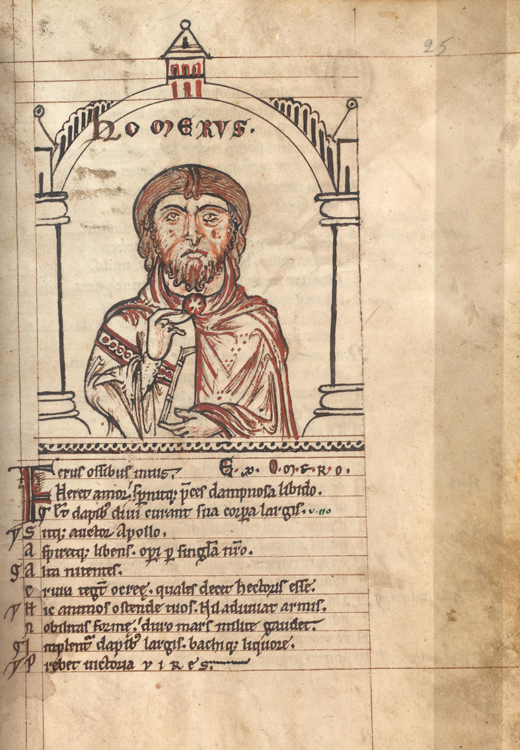 25
hOMERVS.
Ferus ossibus imis. Ex. Omero.
Heret amor. spnitq; pces dampnosa libido.
dapib; diui curant sua corpa largis.
Sitq; auctor Apollo.
aspiretq; libens. opi p singla nro.
alta nitentes.
crura tegt ocreę. quales decet hectoris esse.
Hic animos ostende tuos. Nil adiuuat armis.
nobilitas forme. duro mars milite gaudet.
implent dapib; largis. bachiq; liquore.
Prebet uictoria vires.